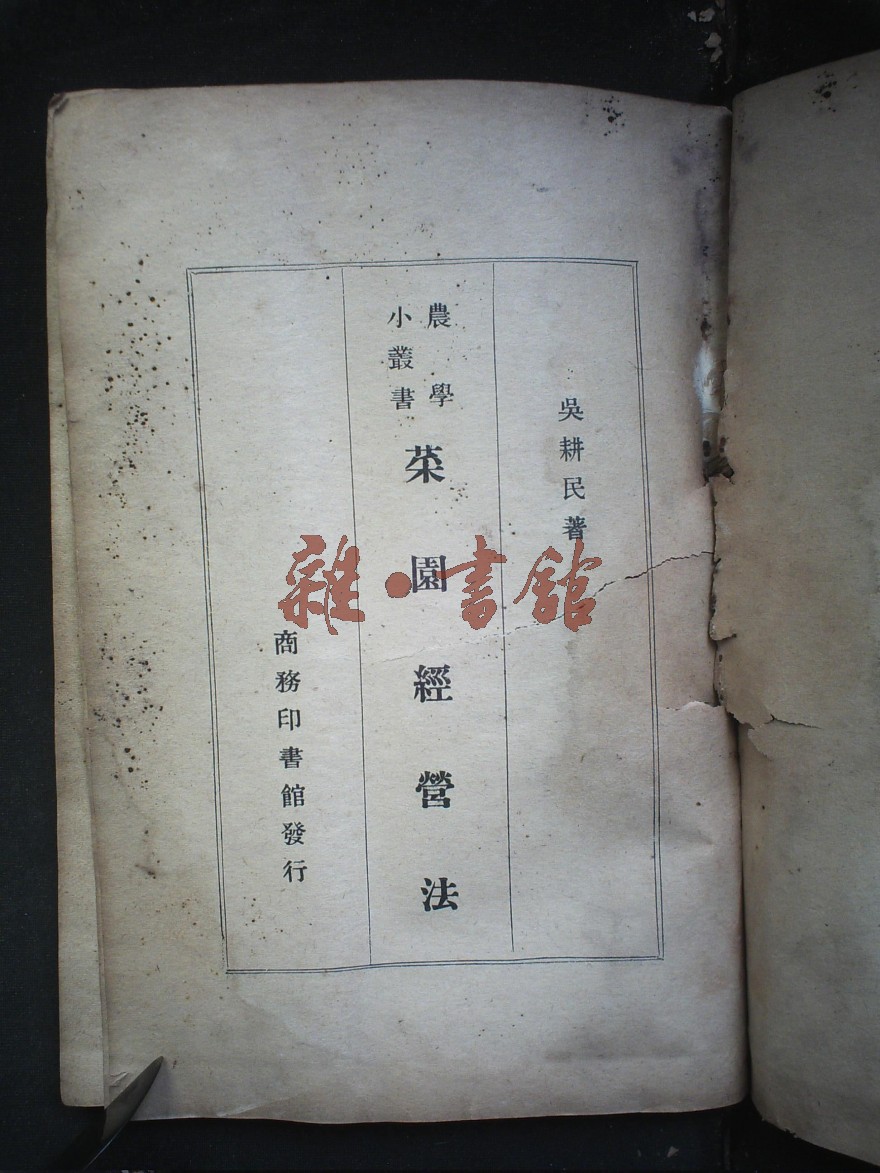 吳耕民著
農學
小叢書
菜園經營法
商務印書館發行
雜·書館